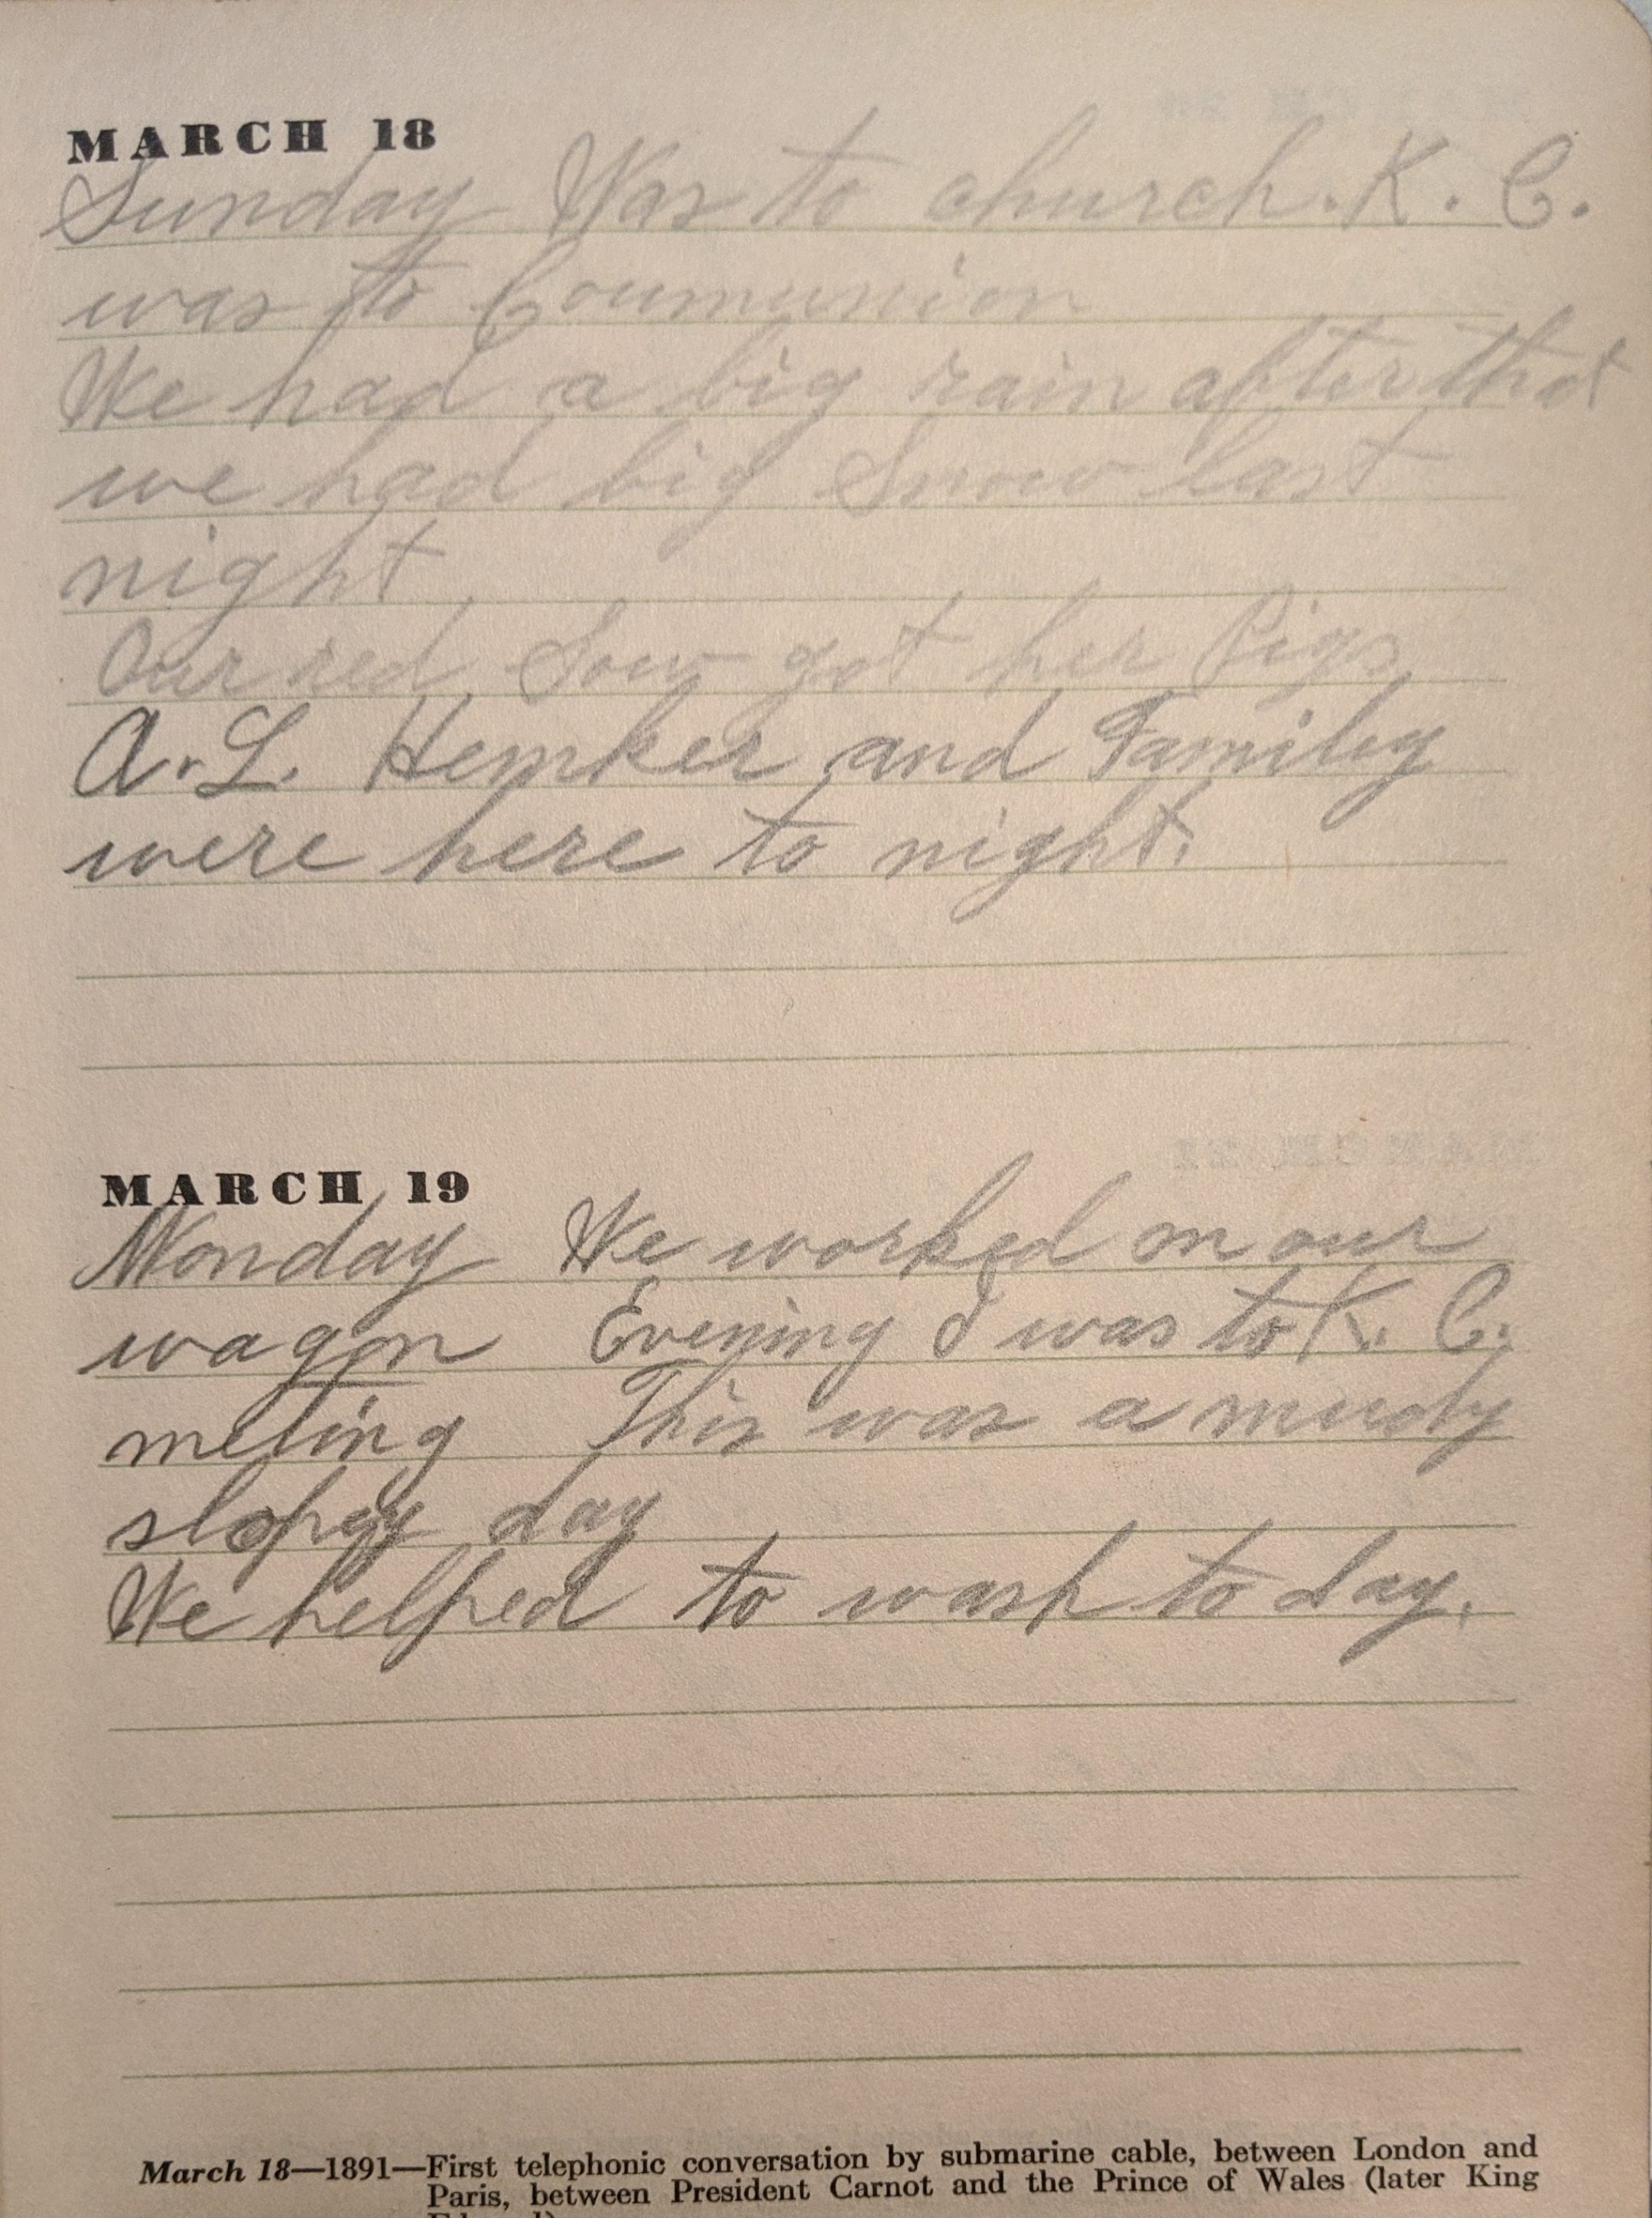 MARCH 18
Sunday Was to church. K. C.
was to Coumunion
We had a big rain after that
we had big Snow last
night
Our red Sow got her Pigs
A. L. Hemker and Familey
were here to night.
MARCH 19
Monday We worked on our
wagon Evening I was to K. C.
meting This was a mudy
slopey day
We helped to wash to day.
March 18—1891—First telephonic conversation by submarine cable, between London and
Paris, between President Carnot and the Prince of Wales (later King